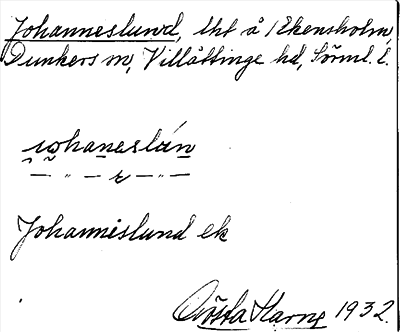 Johanneslund, lht å Ekensholm,
Dunkers sn, Villåttinge hd, Sörml. l.
johaneslún
— " — r — " —
Johannislund ek
Gösta Harne 1932.